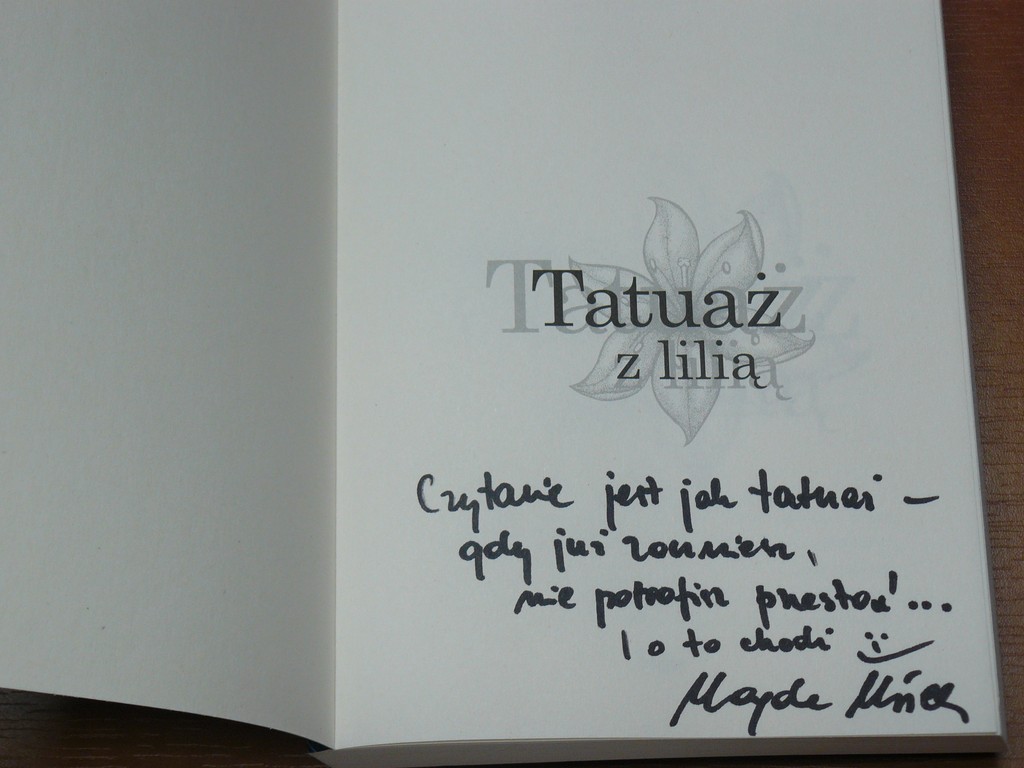 Tatuaż
z lilią
Czytanie jest jak tatuaż –
gdy już zaczniesz,
nie potrafisz przestać!...
I o to chodzi :)
Magda